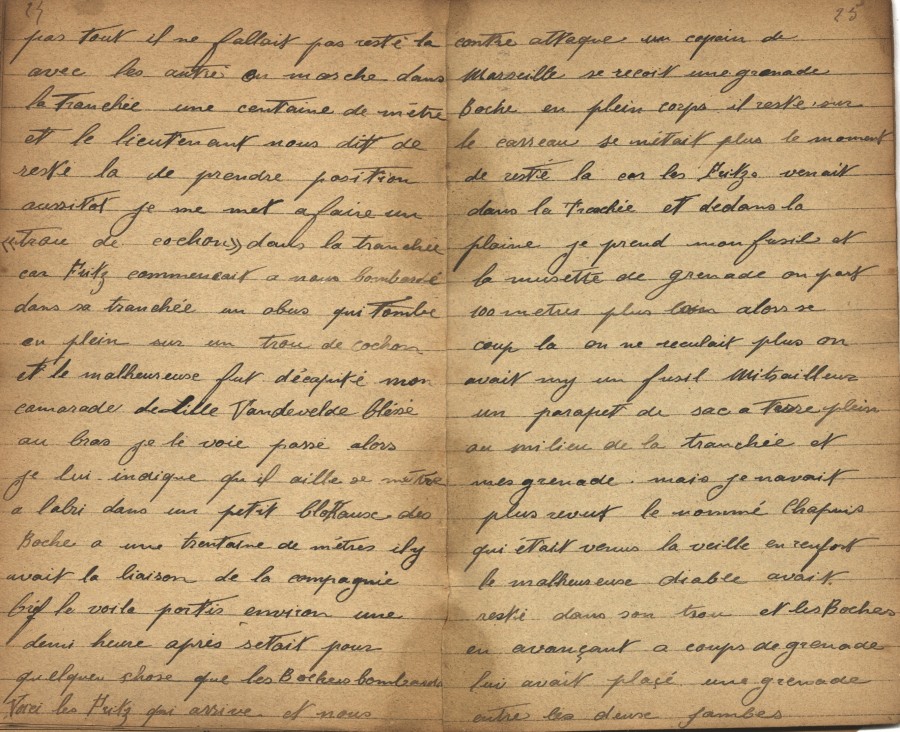 24
pas tout il ne fallait pas resté la
avec les autre on marche dans
la Tranchée une centaine de mètre
et le lieutenant nous dit de
resté la de prendre position
aussitot je me met a faire un
«trou de cochon» dans la tranchée
car Fritz commencait a nous bombardé
dans sa tranchée un obus qui Tombe
en plein sur un trou de cochon
et le malheureuse fut décapité mon
camarade de Lille Vandevelde bléssé
au bras je le voie passé alors
je lui indique qu'il aille se mettre
a labri dans un petit des
Boche a une trentaine de mètres il y
avait la liaison de la compagnie
bref le voila portis environ une
demi heure après setait pour
quelquer chose que les Bochers bombards
Voici les Fritz qui arrive et nous
25
contre attaque un copain de
Marseille se recoit une grenade
Boche en plein corps il reste sur
le carreau se nétait plus le moment
de resté la car les Fritzs venait
dans la Trachée et dedans la
plaine je prend mon fusil et
la musette de grenade on part
100 metres plus loin alors se
coup la on ne reculait plus on
avait my un fusil Mitrailleur
un parapet de sac a Terre plein
au milieu de la tranchée et
mes grenade. mais je navait
plus revut le nommé Chapuis
qui était venus la veille en renfort
le malheureuse diable avait
resté dans son trou et les Boches
en avançant a coups de grenade
lui avait plaçé une grenade
entre les deuse jambes